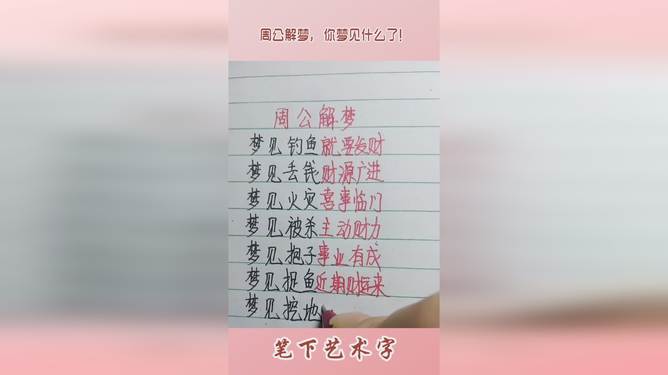 周公解梦，你梦见什么了！
周公解梦
梦见钓鱼就要发财
梦见丢钱财源广进
梦见火灾喜事临门
梦见被杀主动财力
梦见抱子事业有成
梦见捉鱼近期财运来
梦见挖地
笔下艺术字